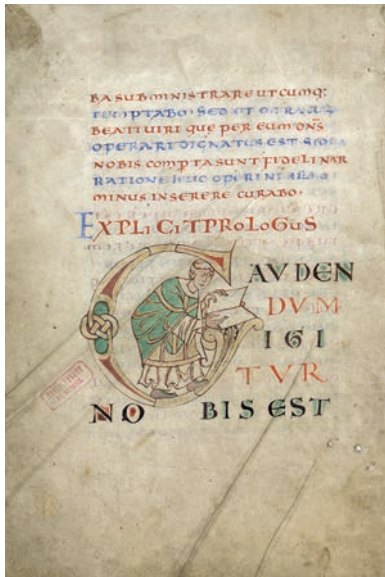 BASUBMINISTRARE UT CUMQ:
TEMPTABO· SED ET
BEATI UIRI QUE PER EUM DN̄S
OPERARI DIGNATUS EST
NOBIS COMPTA SUNT FIDELI NAR
RATIONE HUIC OPERI
MINUS INSERERE CURABO·
EXPLICIT PROLOGUS
GAVDEN
DVM
IGI
TVR
NO BIS EST